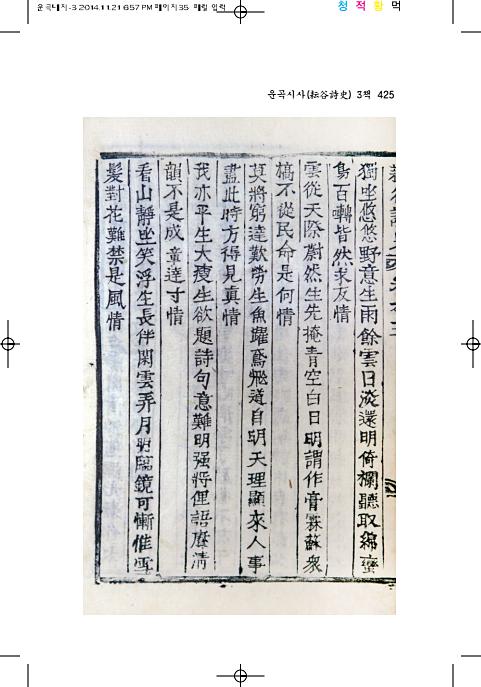 운곡시사(耘谷詩史) 3책 425
獨坐悠悠野意生雨餘雲日淡還明倚欄聽取綿蠻
鳥百囀皆然求友情
雲從天際蔚然生先掩青空白日明謂作膏霖蘇衆
槁不從民命是何情
莫將窮達歎勞生魚躍鳶飛道自明天理顯來人事
盡此時方得見真情
我亦平生大瘦生欲題詩句意難明强將俚語賡清
韻不是成章達寸情
看山靜坐笑浮生長伴閑雲弄月明臨鏡可慚催雪
髮對花難禁是風情
청 적 황 먹